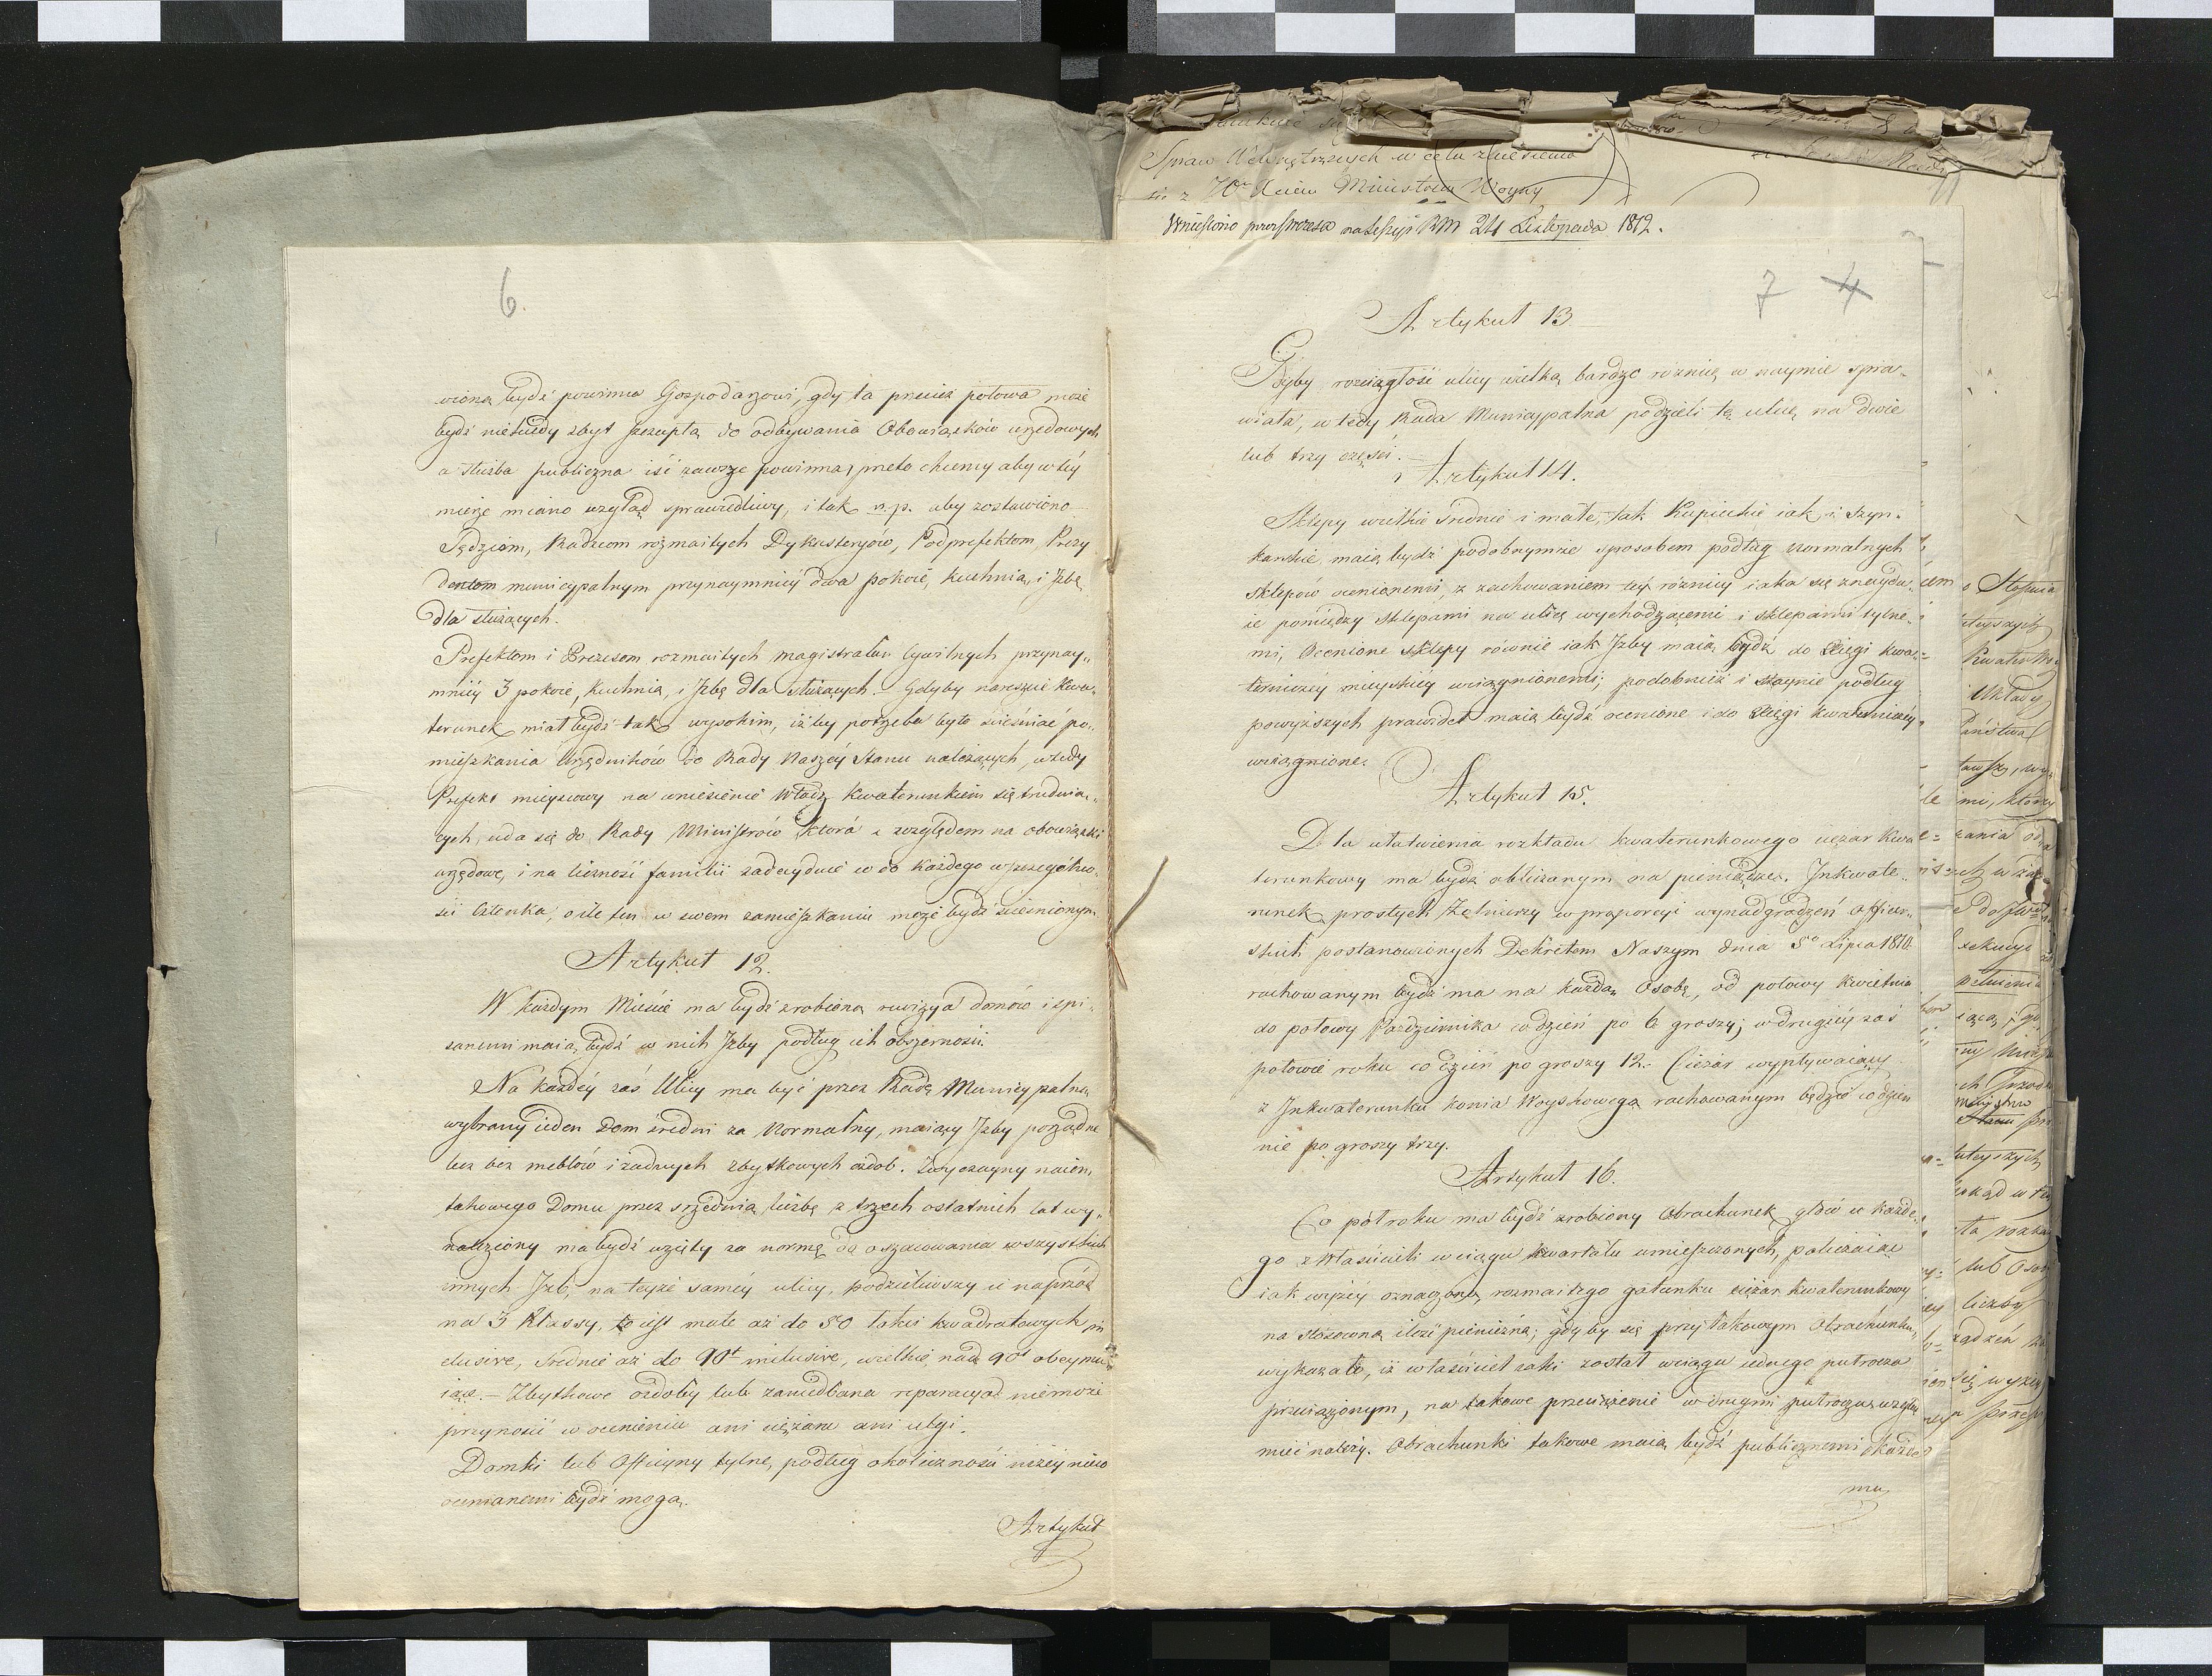 6.
wioną bydź powinna Gospodarzowi, gdy ta przecież połowa może
bydź niekiedy zbyt szczupłą do odbywania Obowiązków urzędowych
a służba publiczna iść zawsze powinna, przeto chcemy aby w tey
mierze miano wzgląd sprawiedliwy, i tak n.p. aby zostawiono
Sędziom, Radzcom rozmaitych Dykasteryów, Podprefektom, Prezy
dentom municypalnym przynaymniey dwa pokoie, kuchnia, i Izbę
dla służących.
Prefektom i Prezesom rozmaitych magistratur Cywilnych przynay„
mniey 3 pokoie, kuchnia, i Izbę dla służących. Gdyby nareszcie Kwa„
terunek miał bydź tak wysokim, iżby potrzeba było ścieśniać po„
mieszkania Urzędników do Rady Naszey Stanu należących, wtedy
Prefekt mieyscowy na wniesienie Władz Kwaterunkiem się trudnią„
cych, uda się do Rady Ministrów która z względem na obowiązki
urzędowe, i na liczność familii zadecyduie co do każdego w szczególno„
ści Członka, o ile ten w swem zamieszkaniu może bydź ścieśnionym
Artykuł 12.
W każdym Mieście ma bydź zrobiona rewizya domów i spi„
sanemi maią bydź w nich Izby podług ich obszerności.
Na każdey zaś Ulicy ma być przez Radę Municypalną
wybrany ieden Dom średni za Normalny, maiący Izby porządne
lecz bez meblów i żadnych zbytkowych ozdob. Zwyczayny naiem
takowego Domu przez srzednią liczbę z trzech ostatnich lat wy„
nalezi​ony ma bydź wzięty za normę do oszacowania wszystkich
innych Izb, na teyże samey ulicy, podzieliwszy ie naprzód
na 3 Klassy, to iest małe aż do 50 łokci kwadratowych in
clusive, średnie aż do 90t inclusive, wielkie nad 90t obeymu
iące. – Zbytkowe ozdoby lub zaniedbana reparacya niemoże
przynosić w ocenieniu ani ciężaru ani ulgi.
Domki lub Officyny tylne, podług okoliczności niżey nieco
ocenianemi bydź mogą.
Artykuł
Spraw Wewnętrznych w celu zniesienia
się z JO Xciem Ministrem Woyny
Wniesiono przez Prezesa na Sessyi RM 24 Listopada 1812.
7 4
Artykuł 13
Gdyby rozciągłość ulicy wielką bardzo różnicę w naymie spra„
wiała, w tedy Rada Municypalna podzieli tę ulicę na dwie
lub trzy części.
Artykuł 14.
Sklepy wielkie średnie i małe, tak Kupieckie iak i Szyn„
karskie maią bydź podobnymże sposobem podług normalnych
sklepów ocenionemi, z zachowaniem tey różnicy iaka się znaydu„
ie pomiędzy sklepami na ulicę wychodzącemi i sklepami tylne„
mi, Ocenione sklepy równie iak Izby maią bydź do Xięgi kwa„
terniczey mieyskiey wciągnionemi; podobnież i staynie podług
powyższych prawideł maią bydź ocenione i do Xięgi kwaterniczey
wciągnione.
Artykuł 15.
Dla ułatwienia rozkładu kwaterunkowego ciężar Kwa
terunkowy ma bydź obliczanym na pieniądze. Inkwate„
runek prostych Żołnierzy w proporcyi wynadgrodzeń officer„
skich postanowionych Dekretem Naszym dnia 5o Lipca 1810.
rachowanym bydź ma na każdą Osobę, od połowy kwietnia
do połowy Października co dzień po 6 groszy; w drugiey zaś
połowie roku co dzień po groszy 12. Ciężar wypływaiący
z Inkwaterunku konia Woyskowego rachowanym będzie codzien
nie po groszy trzy.
Artykuł 16.
Co pół roku ma bydź zrobiony Obrachunek głów u każde„
go z właścicieli w ciągu kwartału umieszczonych, policzaiąc
iak wyżey oznaczono, rozmaitego gatunku ciężar kwaterunkowy
na stosowną ilość pieniężną; gdyby się przy takowym Obrachunku„
wykazało, iż właściciel iaki został wciągu iednego putrocza
przeciążonym, na takowe przeciążenie w drugim putroczu wzgląd
mieć należy. Obrachunki takowe maią bydź publicznemi każde
mu,